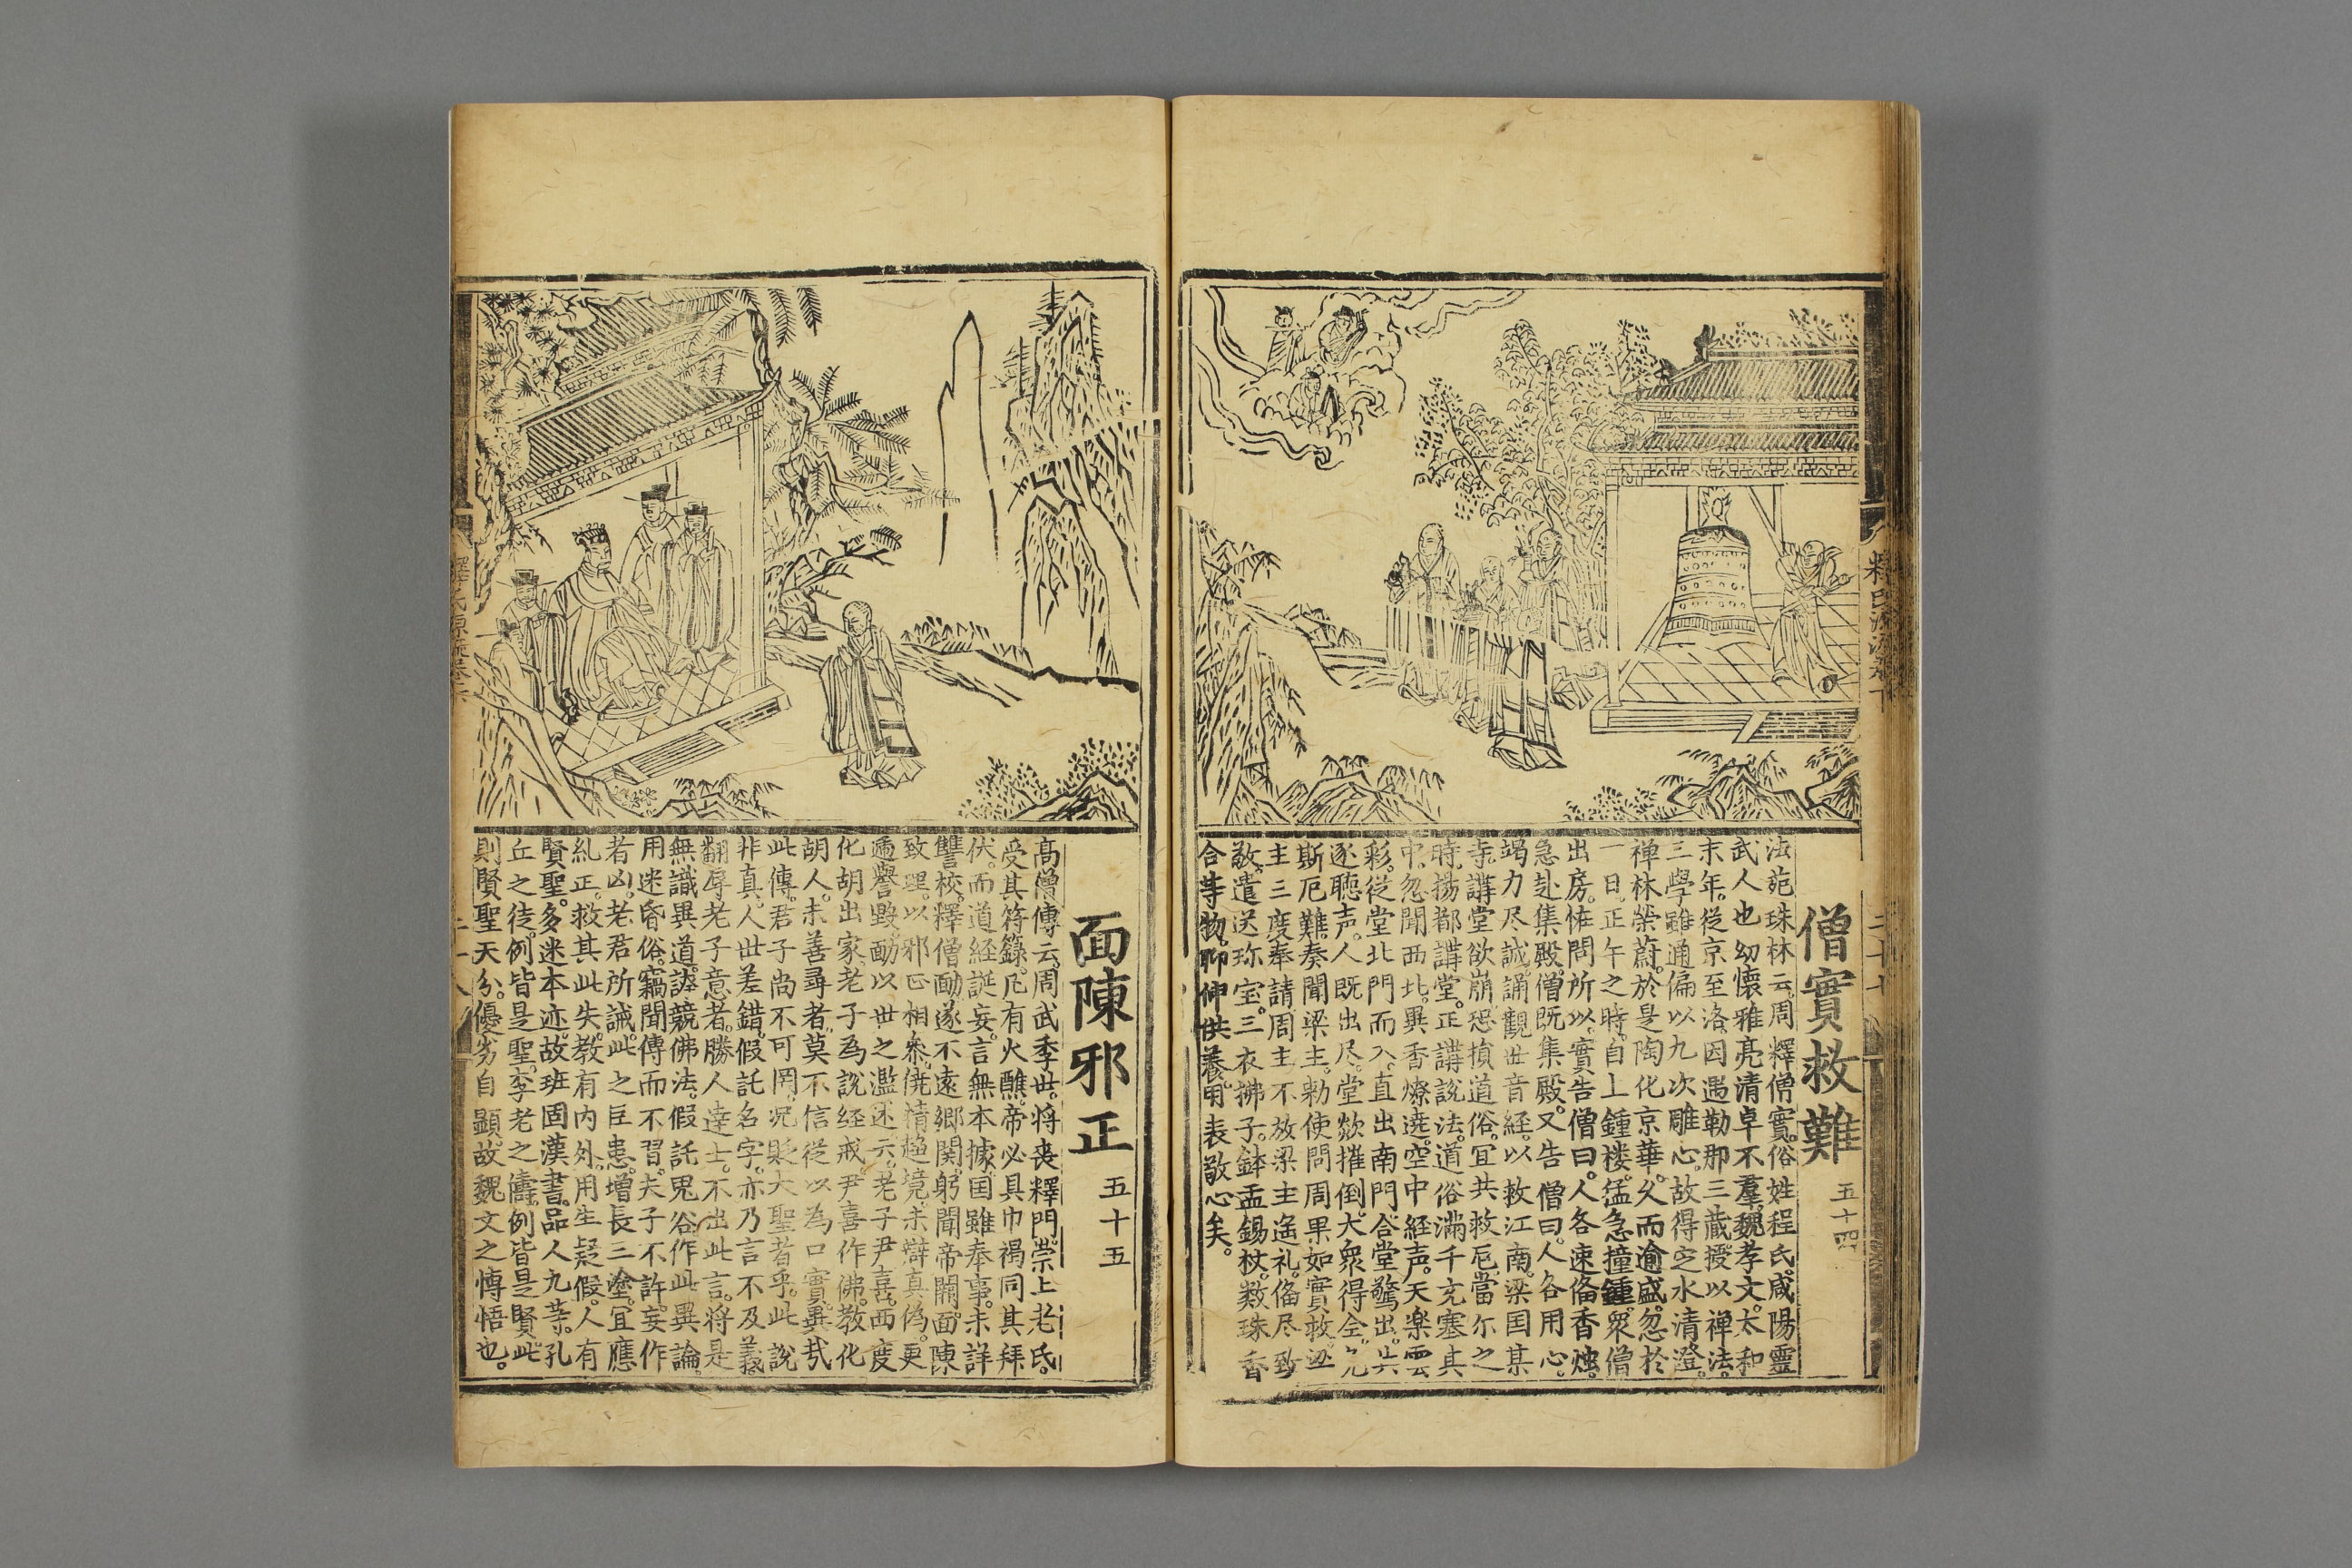 僧實救難 五十四
法苑珠林云周釋僧實。俗姓程氏。咸陽靈
武人也幼懷雅亮清卓不羣。魏孝文。太和
末年。從京至洛。因遇勒那三藏。授以禅法。
三學雖通偏以九次雕心。故得定水清澄。
禅林榮蔚。於是陶化京華。久而逾盛。忽於
一日。正午之時。自上鍾楼。猛急撞鍾。衆僧
出房。恠問所以。實告僧曰。人各速俻香燭。
急赴集殿。僧既集殿。又告僧曰。人各用心。
竭力尽誠。誦觀世音経。以救江南。梁国某
寺。講堂欲崩。恐損道俗。冝共救厄。當尔之
時。揚都講堂。正講說法。道俗滿千充塞其
中。忽聞西北。異香燎遶。空中経声。天楽雲
彩。從堂北門而入。直出南門。合堂驚出。共
逐聴声。人既出尽。堂欻摧倒。大衆得全。免
斯厄難。奏聞梁主。勅使問周。果如實救。迎
主三度奉請。周主不放梁主遥礼。俻尽致
敬。遣送珎宝。三衣拂子。鉢盂錫杖。数珠香
合等物。聊伸供養。用表敬心矣。
面陳邪正 五十五
髙僧傳云。周武季世。将喪釋門。崇上老氏。
受其符籙。凡有火醮。帝必具巾褐同其拜
伏。而道経誕妄。言無本據。国雖奉事。未詳
讐校。釋僧勔。遂不遠郷関。躬聞帝闕。面陳
致理。以邪正相叅。情趋境。未辯真偽。更
遞譽毀。勔以世之濫述云。老子尹喜。西度
化胡出家。老子為說経戒。尹喜作佛。教化
胡人。未善尋者。莫不信從以為口實。異哉
此傳。君子尚不可罔。况貶大聖者乎。此說
非真。人世差錯。假託名字。亦乃言不及義。
翻辱老子意者。勝人達士。不出此言。将是
無識異道。誇競佛法。假託鬼谷。作此異論。
用迷昏俗。竊聞傳而不習。夫子不許。妄作
者凶。老君所誡。此之巨患。增長三塗。冝應
糺正。救其此失。教有内外。用生疑假。人有
賢聖。多迷本迹。故班固漢書。品人九等。孔
丘之徒。例皆是聖。李老之儔。例皆是賢。此
則賢聖天分。優劣自顯。故魏文之慱悟也。